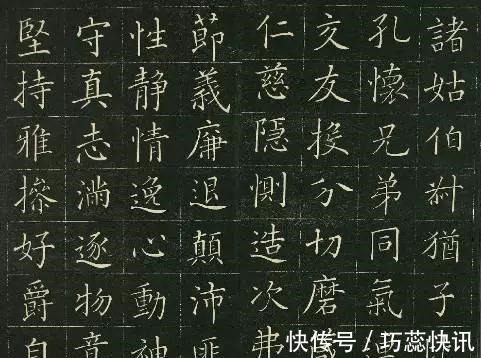 諸姑伯叔猶子
孔懷兄弟同氣
交友投分切磨
仁慈隱惻造次弗
莭義廉退顛沛匪
性靜情逸心動神
守真志滿逐物意
堅持雅操好爵自
快传号／巧蕊快讯